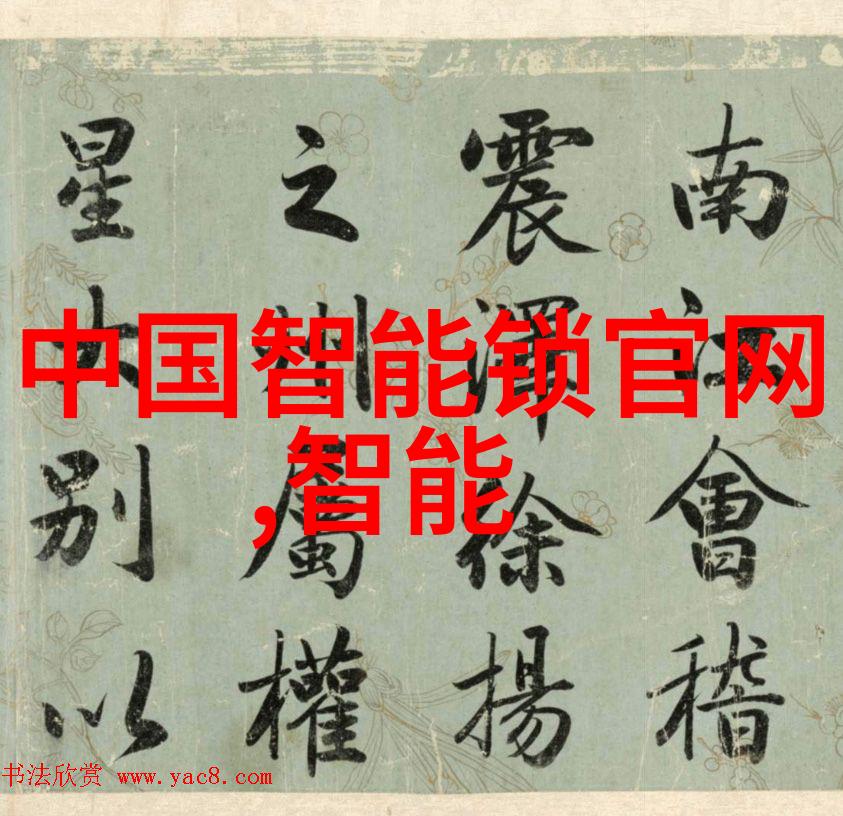 南江會稽
震澤徐揚
之州屬權
星女別以
中国智能锁官网
,智能
书法欣赏 www.yac8.com